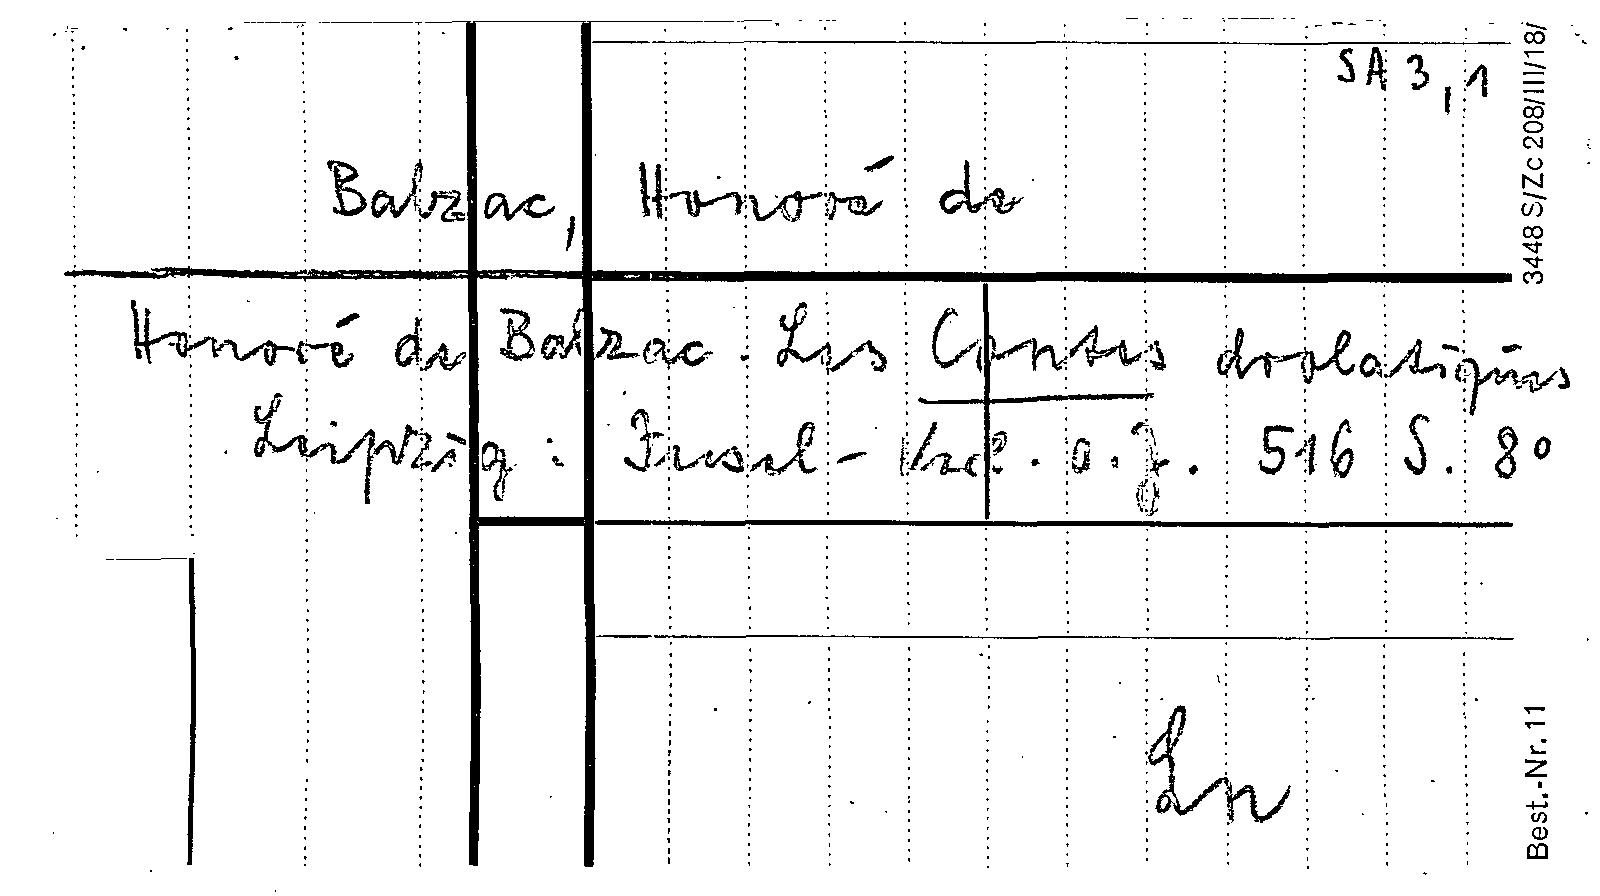 SA 3,1
Balzac, Honoré de
Honoré de Balzac. Les Contes drolatiques
Leipzig: Insel-Verl. o.J. 516 S. 8°
Ln
3448 S/Zc 208/III/18/
Best.-Nr. 11